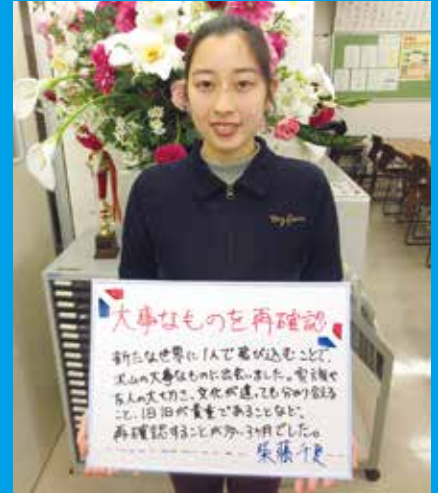 大事なものを再確認
新たな世界に1人で飛び込むことで、
沢山の大事なものに出会いました。家族や
友人の大切さ、文化が違っても分かり合える
こと、1日1日が貴重であることなど、
再確認することが多い3ヶ月でした。